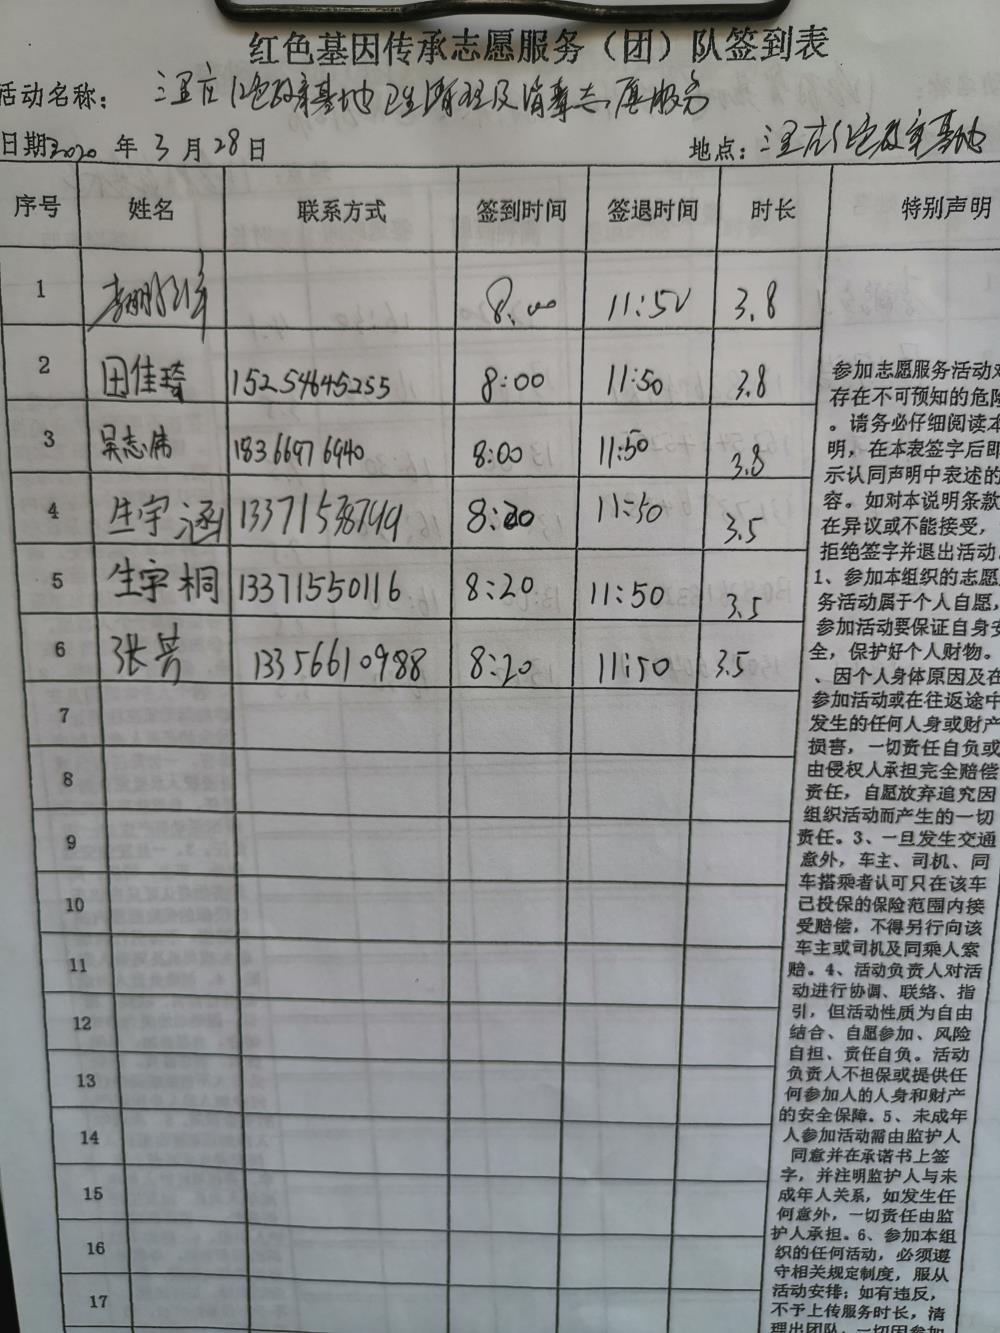 红色基因传承志愿服务（团）队签到表
活动名称： 三里庄红色教育基地卫生清理及消毒志愿服务
日期2020 年 3 月 28 日 地点：三里庄红色教育基地
序号 姓名 联系方式 签到时间 签退时间 时长 特别声明
1 8:00 11:50 3.8
2 田佳琦 15254645255 8:00 11:50 3.8
3 吴志伟 18366976940 8:00 11:50 3.8
4 生宇涵 13371558799 8:20 11:50 3.5
5 生宇桐 13371550116 8:20 11:50 3.5
6 张芳 13356610988 8:20 11:50 3.5
7
8
9
10
11
12
13
14
15
16
17
参加志愿服务活动对
存在不可预知的危险
。请务必仔细阅读本
明，在本表签字后即
示认同声明中表述的
容。如对本说明条款
在异议或不能接受，
拒绝签字并退出活动
1、参加本组织的志愿
务活动属于个人自愿，
参加活动要保证自身安
全，保护好个人财物。
、因个人身体原因及在
参加活动或在往返途中
发生的任何人身或财产
损害，一切责任自负或
由侵权人承担完全赔偿
责任，自愿放弃追究因
组织活动而产生的一切
责任。3、一旦发生交通
意外，车主、司机、同
车搭乘者认可只在该车
已投保的保险范围内接
受赔偿，不得另行向该
车主或司机及同乘人索
赔。4、活动负责人对活
动进行协调、联络、指
引，但活动性质为自由
结合、自愿参加、风险
自担、责任自负。活动
负责人不担保或提供任
何参加人的人身和财产
的安全保障。5、未成年
人参加活动需由监护人
同意并在承诺书上签
字，并注明监护人与未
成年人关系，如发生任
何意外，一切责任由监
护人承担。6、参加本组
织的任何活动，必须遵
守相关规定制度，服从
活动安排；如有违反，
不予上传服务时长，清
理出团队，一切因参加